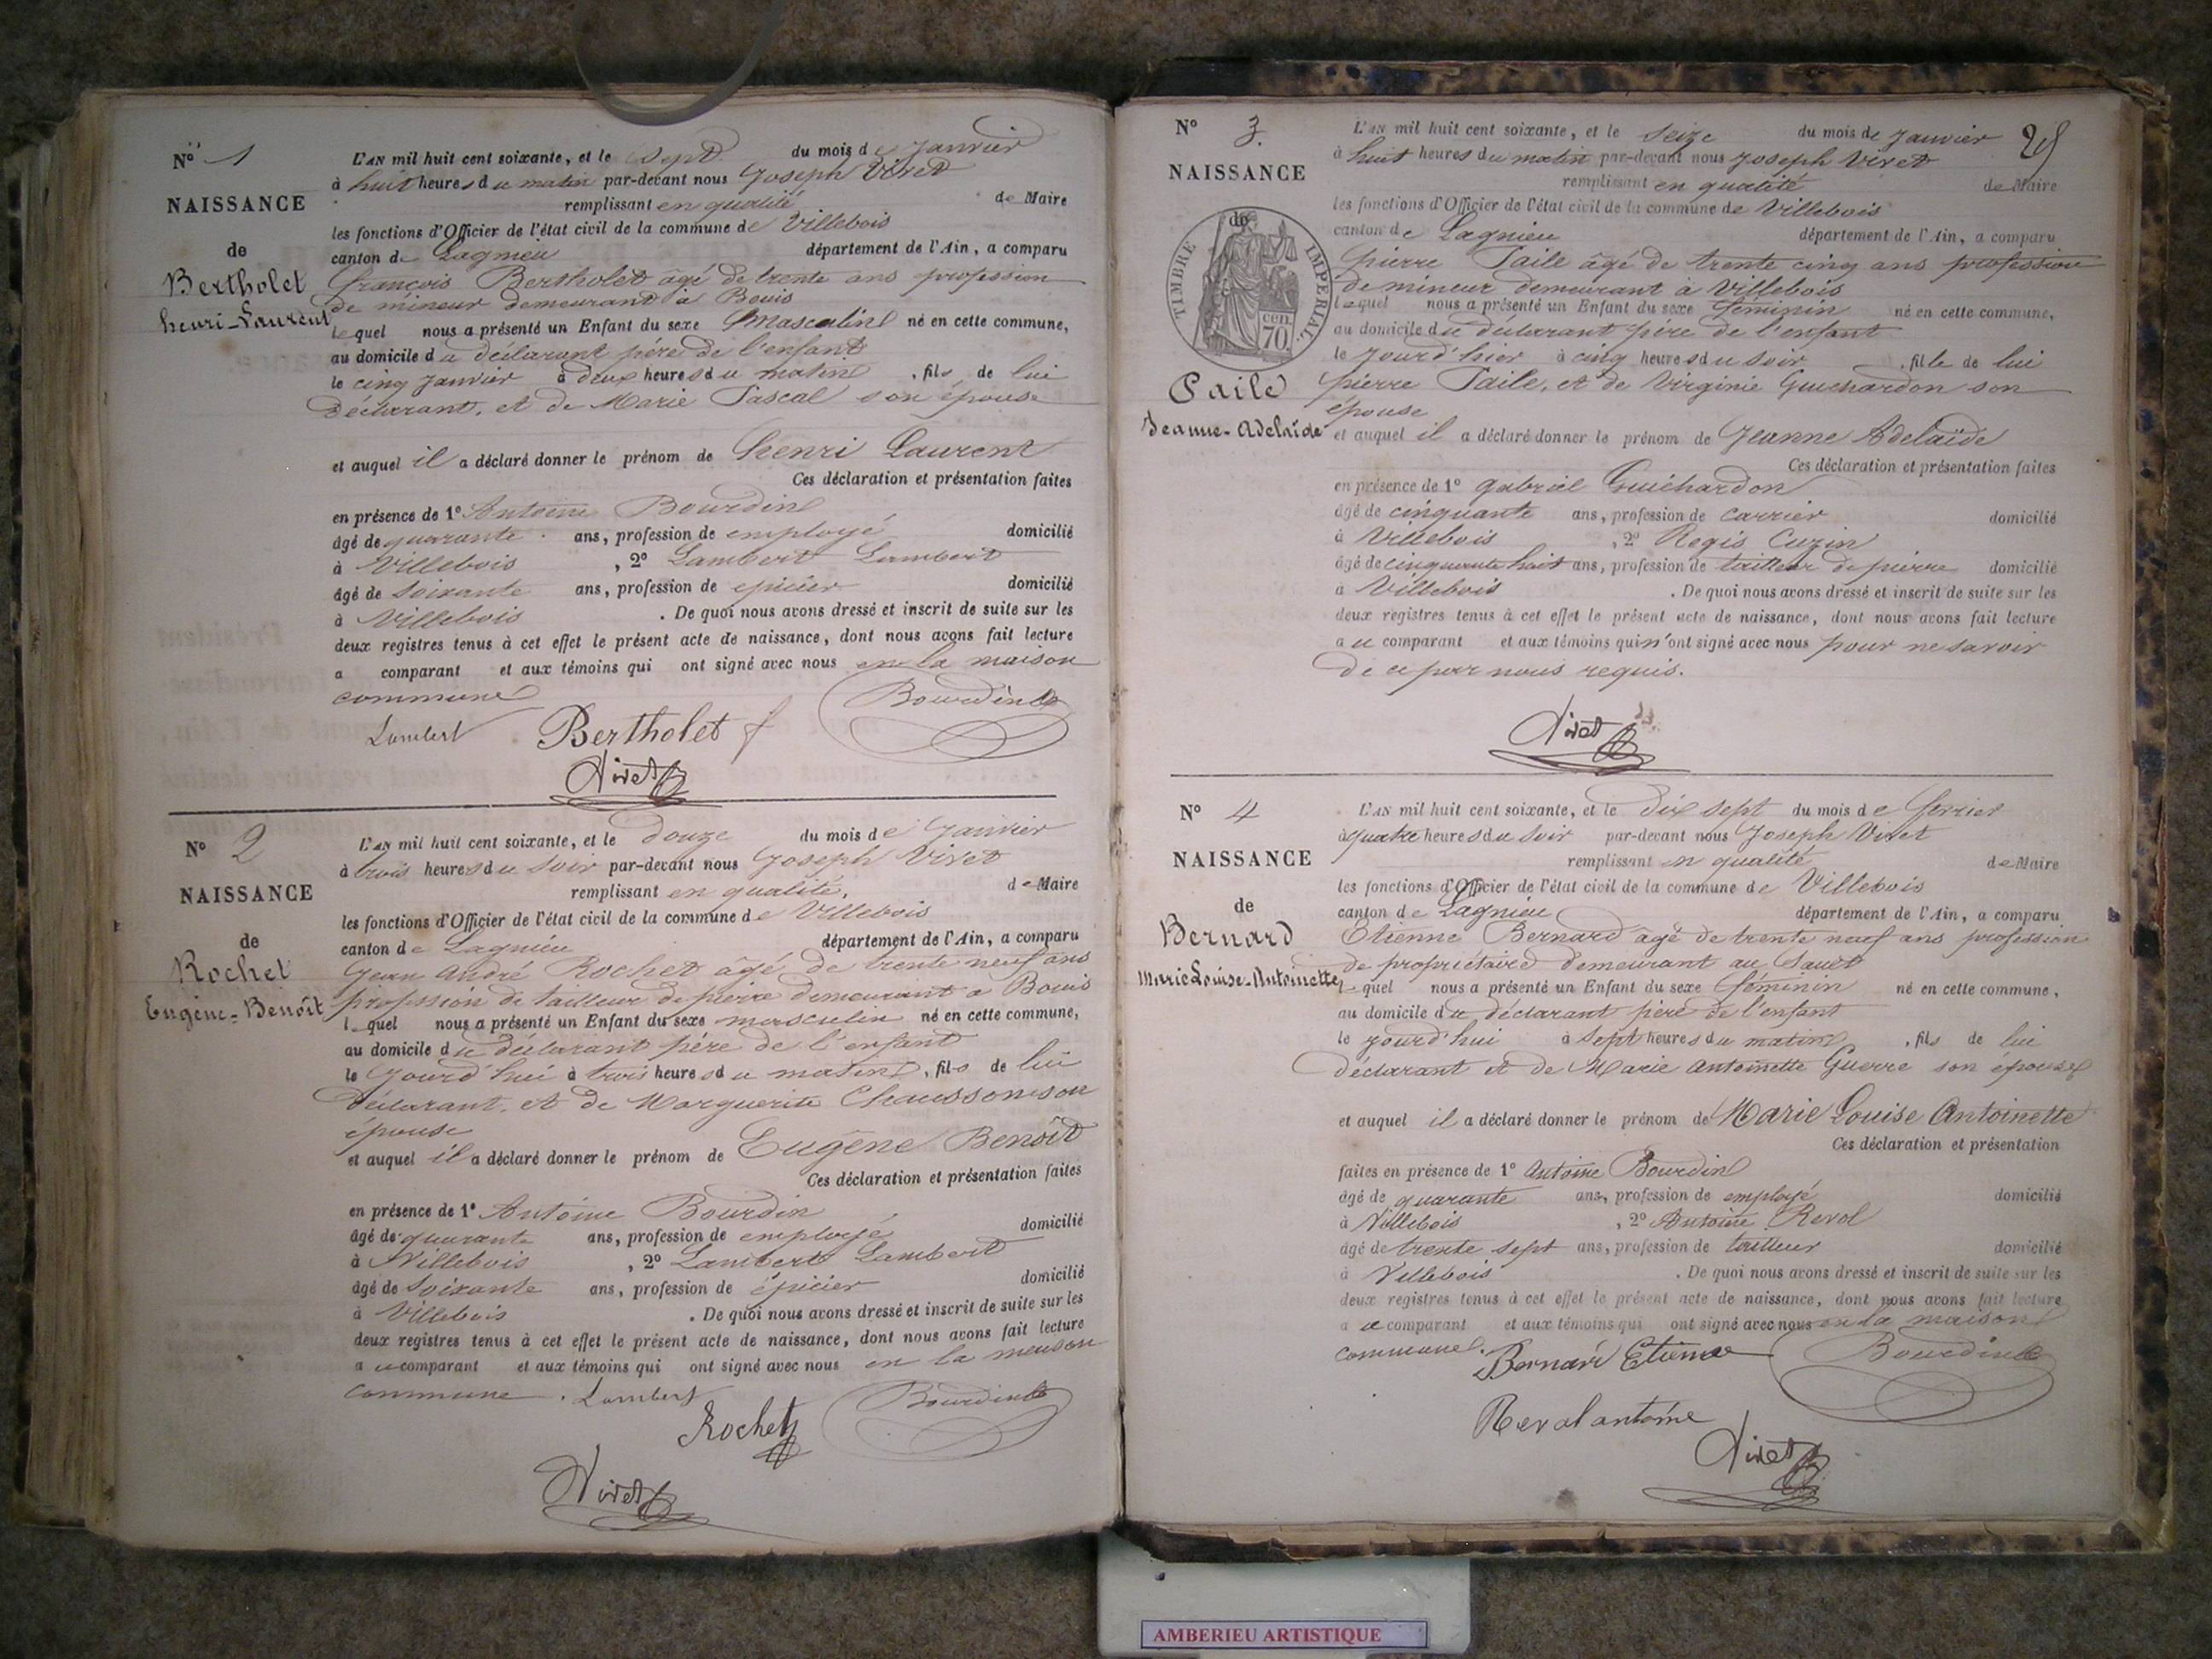 N° 1
NAISSANCE
de
Bertholet
henri-Laurent
L'AN mil huit cent soixante, et le sept du mois de Janvier
à huit heures du matin par-devant nous Joseph Vivet
remplissant en qualité de Maire
les fonctions d'Officier de l'état civil de la commune de Villebois
canton de Lagnieu département de l'Ain, a comparu
françois Bertholet âgé de trente ans profession
de mineur demeurant à Bouis
lequel nous a présenté un Enfant du sexe Masculin né en cette commune,
au domicile du déclarant père de l'enfant
le cinq Janvier à deux heures du matin, fils de lui
déclarant, et de Marie Pascal son épouse
et auquel il a déclaré donner le prénom de henri Laurent
Ces déclaration et présentation faites
en présence de 1° Antoine Bourdin
âgé de quarante ans, profession de employé domicilié
à Villebois, 2° Lambert Lambert
âgé de soixante ans, profession de epicier domicilié
à Villebois. De quoi nous avons dressé et inscrit de suite sur les
deux registres tenus à cet effet le présent acte de naissance, dont nous avons fait lecture
a comparant et aux témoins qui ont signé avec nous en la maison
commune
Lambert Bertholet f Bourdin
Vivet
N° 2
NAISSANCE
de
Rochet
Eugène-Benoît
L'AN mil huit cent soixante, et le douze du mois de Janvier
à trois heures du soir par-devant nous Joseph Vivet
remplissant en qualité, de Maire
les fonctions d'Officier de l'état civil de la commune de Villebois
canton de Lagnieu département de l'Ain, a comparu
Jean André Rochet âgé de trente neuf ans
profession de tailleur de pierre demeurant a Bouis
lequel nous a présenté un Enfant du sexe masculin né en cette commune,
au domicile du déclarant père de l'enfant
le Jourd'hui à trois heures du matin, fils de lui
déclarant, et de Marguerite Chausson son
épouse
et auquel il a déclaré donner le prénom de Eugène Benoît
Ces déclaration et présentation faites
en présence de 1° Antoine Bourdin
âgé de quarante ans, profession de employé domicilié
à Villebois, 2° Lambert Lambert
âgé de soixante ans, profession de épicier domicilié
à Villebois. De quoi nous avons dressé et inscrit de suite sur les
deux registres tenus à cet effet le présent acte de naissance, dont nous avons fait lecture
au comparant et aux témoins qui ont signé avec nous en la maison
commune. Lambert
Rochet Bourdin
Vivet
N° 3
NAISSANCE
de
TIMBRE IMPERIAL
70 cen.
Paile
Jeanne-Adelaïde
L'AN mil huit cent soixante, et le seize du mois de Janvier
à huit heures du matin par-devant nous Joseph Vivet
remplissant en qualité de Maire
les fonctions d'Officier de l'état civil de la commune de Villebois
canton de Lagnieu département de l'Ain, a comparu
pierre Paile âgé de trente cinq ans profession
de mineur demeurant à Villebois
lequel nous a présenté un Enfant du sexe féminin né en cette commune,
au domicile du déclarant père de l'enfant
le Jourd'hier à cinq heures du soir, fille de lui
pierre Paile, et de Virginie Guichardon son
épouse
et auquel il a déclaré donner le prénom de Jeanne Adelaïde
Ces déclaration et présentation faites
en présence de 1° gabriel Guichardon
âgé de cinquante ans, profession de carrier domicilié
à Villebois, 2° Regis Cuzin
âgé de cinquante huit ans, profession de tailleur de pierre domicilié
à Villebois. De quoi nous avons dressé et inscrit de suite sur les
deux registres tenus à cet effet le présent acte de naissance, dont nous avons fait lecture
au comparant et aux témoins qui n'ont signé avec nous pour ne savoir
de ce par nous requis.
Vivet
N° 4
NAISSANCE
de
Bernard
Marie Louise-Antoinette
L'AN mil huit cent soixante, et le dix sept du mois de fevrier
à quatre heures du soir par-devant nous Joseph Vivet
remplissant en qualité de Maire
les fonctions d'Officier de l'état civil de la commune de Villebois
canton de Lagnieu département de l'Ain, a comparu
Etienne Bernard âgé de trente neuf ans profession
de propriétaire demeurant au Sault
lequel nous a présenté un Enfant du sexe féminin né en cette commune,
au domicile du déclarant père de l'enfant
le Jourd'hui à sept heures du matin, fils de lui
déclarant et de Marie Antoinette Guerre son épouse
et auquel il a déclaré donner le prénom de Marie Louise Antoinette
Ces déclaration et présentation
faites en présence de 1° Antoine Bourdin
âgé de quarante ans, profession de employé domicilié
à Villebois, 2° Antoine Revol
âgé de trente sept ans, profession de tailleur domicilié
à Villebois. De quoi nous avons dressé et inscrit de suite sur les
deux registres tenus à cet effet le présent acte de naissance, dont nous avons fait lecture
au comparant et aux témoins qui ont signé avec nous en la maison
commune. Bernard Etienne Bourdin
Revol antoine
Vivet
AMBERIEU ARTISTIQUE